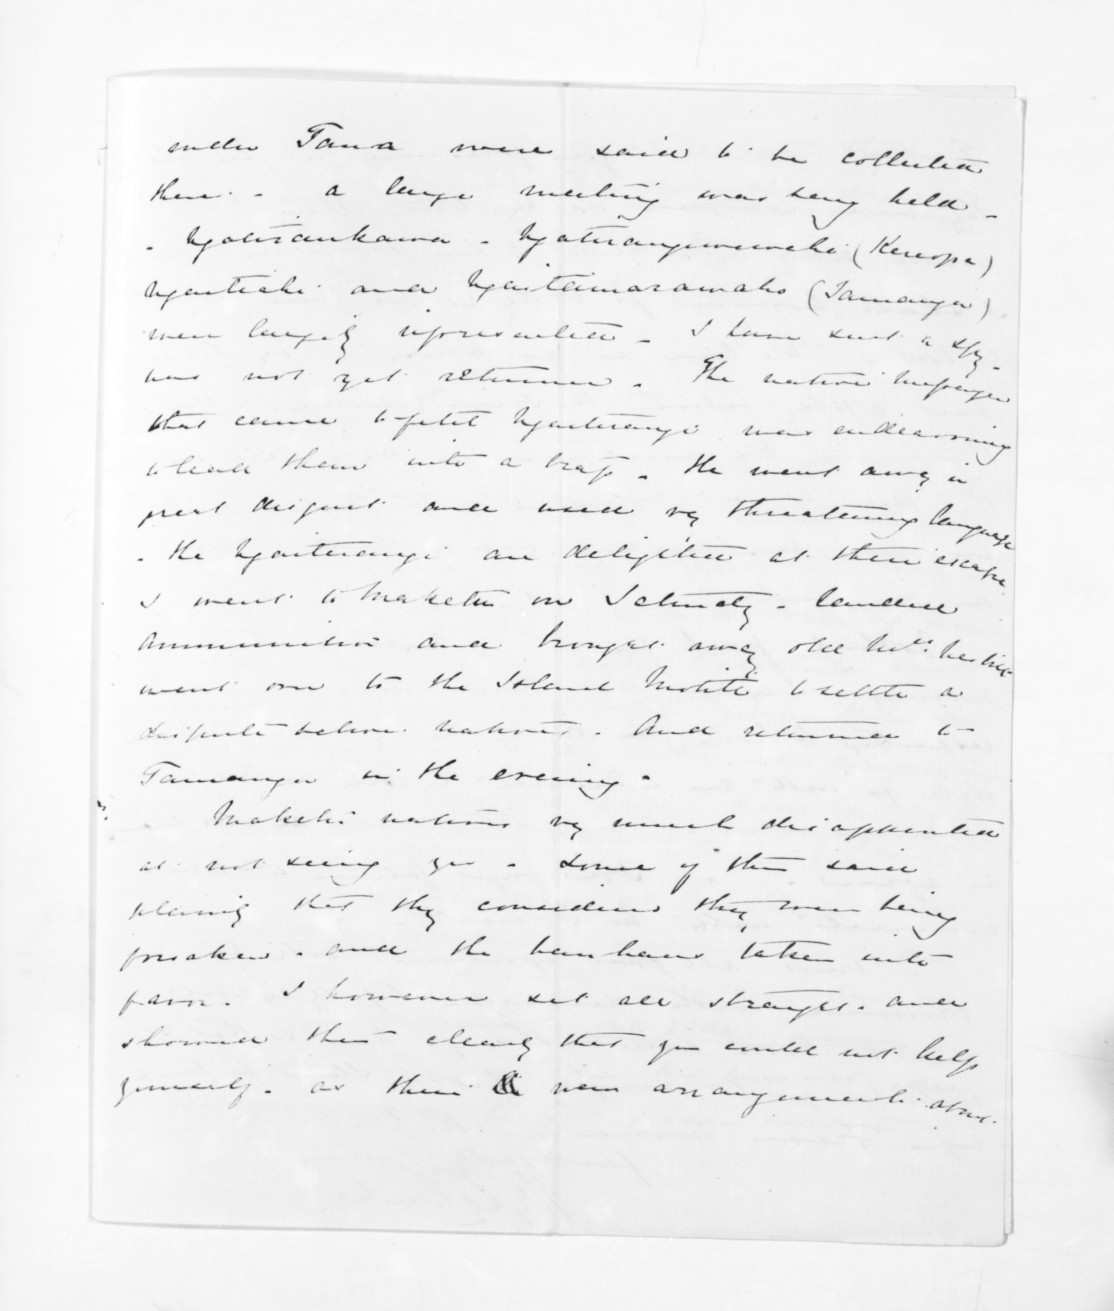 under Tana were said to be collected
there - a large meeting was being held -
- Ngatiraukawa - Ngatirangiwewehi (Kereopa)
Ngaitiahi and Ngaitamarawaho (Tauranga)
were largely represented - I have sent a spy -
has not yet returned - The native messenger
that came to fetch Ngaiterangi was endeavouring
to lead them into a trap - He went away in
great disgust and used vy threatening language
- the Ngaiterangi are delighted at their escape
I went to Maketu on Saturday - landed
ammunition and brought away old
went on to the Island Motiti to settle a
dispute between natives - And returned to
Tauranga in the evening -
Maketu natives vy much disappointed
at not seeing you - Some of them said
plainly that they considered they were being
forsaken - and the hauhaus taken into
favor - I however set all straight - and
showed them clearly that you could not help
yourself - as their new arrangements